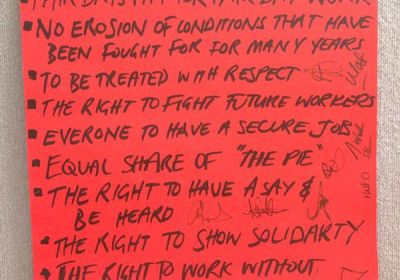 FAIR DAYS PAY FOR FAIR DAY WORK
▪ NO EROSION OF CONDITIONS THAT HAVE
BEEN FOUGHT FOR FOR MANY YEARS
▪ TO BE TREATED WITH RESPECT
▪ THE RIGHT TO FIGHT FUTURE WORKERS
▪ EVERONE TO HAVE A SECURE JOB
▪ EQUAL SHARE OF "THE PIE"
▪ THE RIGHT TO HAVE A SAY &
BE HEARD
▪ THE RIGHT TO SHOW SOLIDARTY
▪ THE RIGHT TO WORK WITHOUT